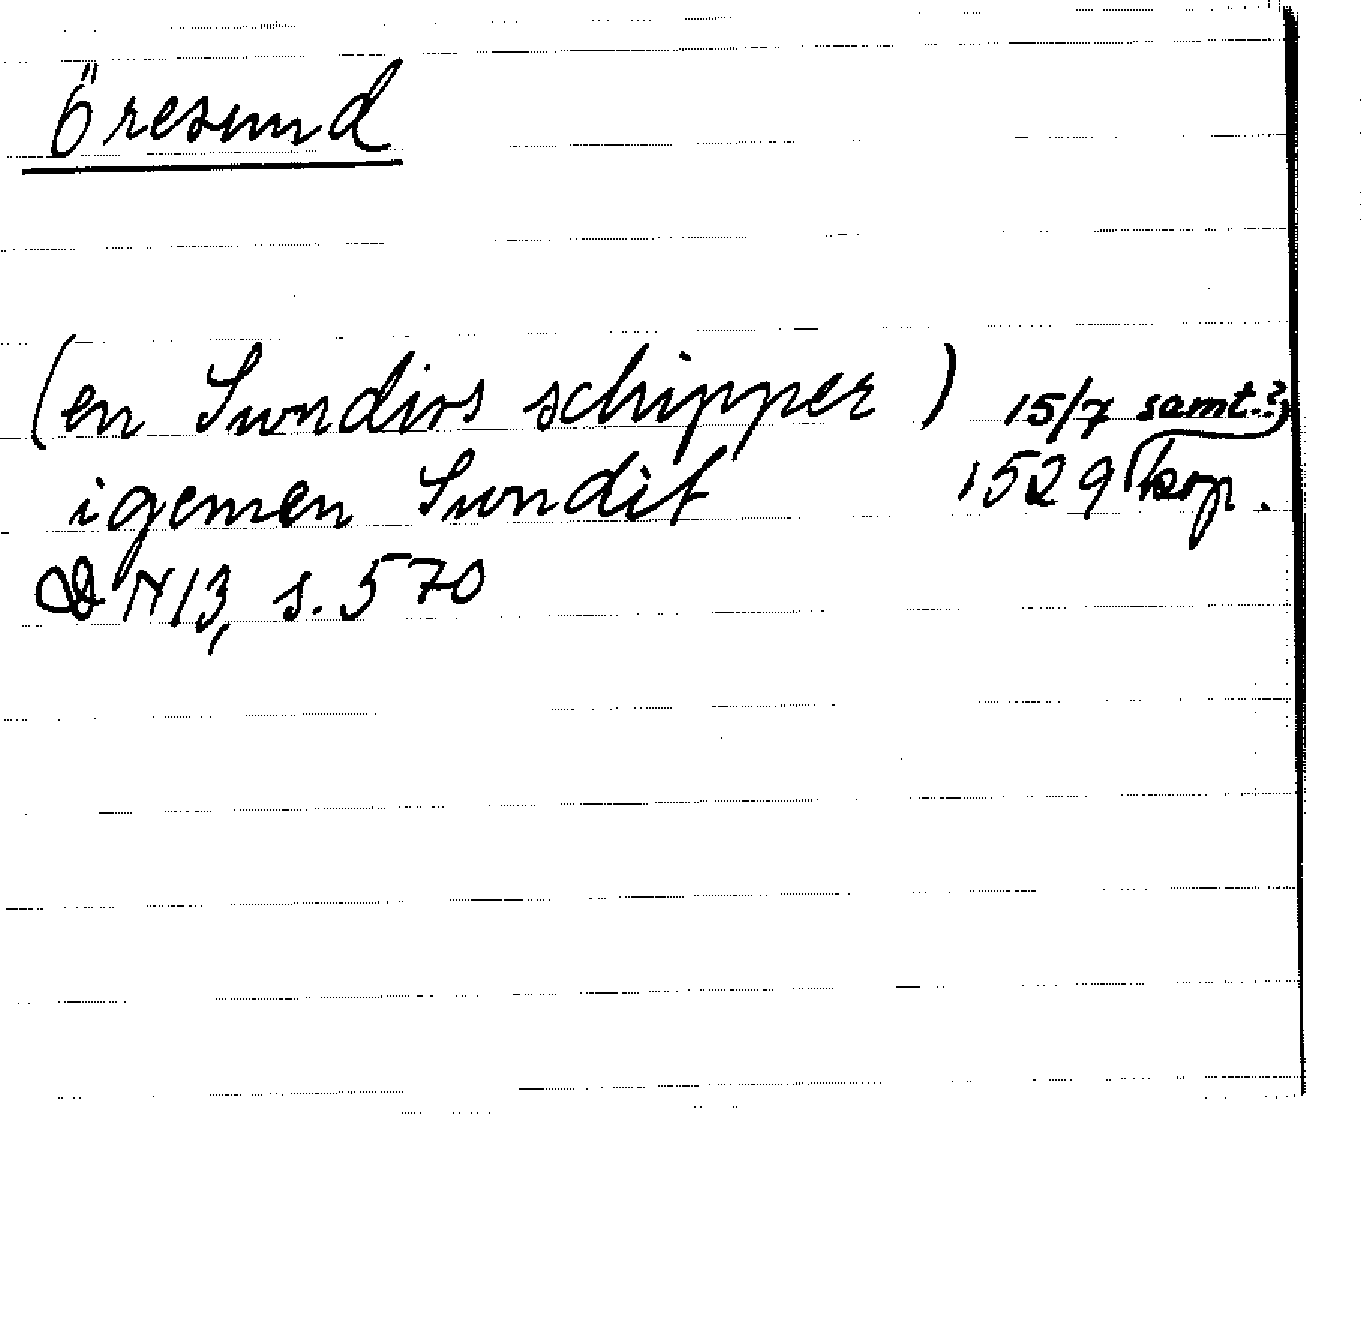 Öresund
(en Swndirs schipper) 15/7 samt.?
igemen Swndit 1529 kop.
DN 13, s. 570